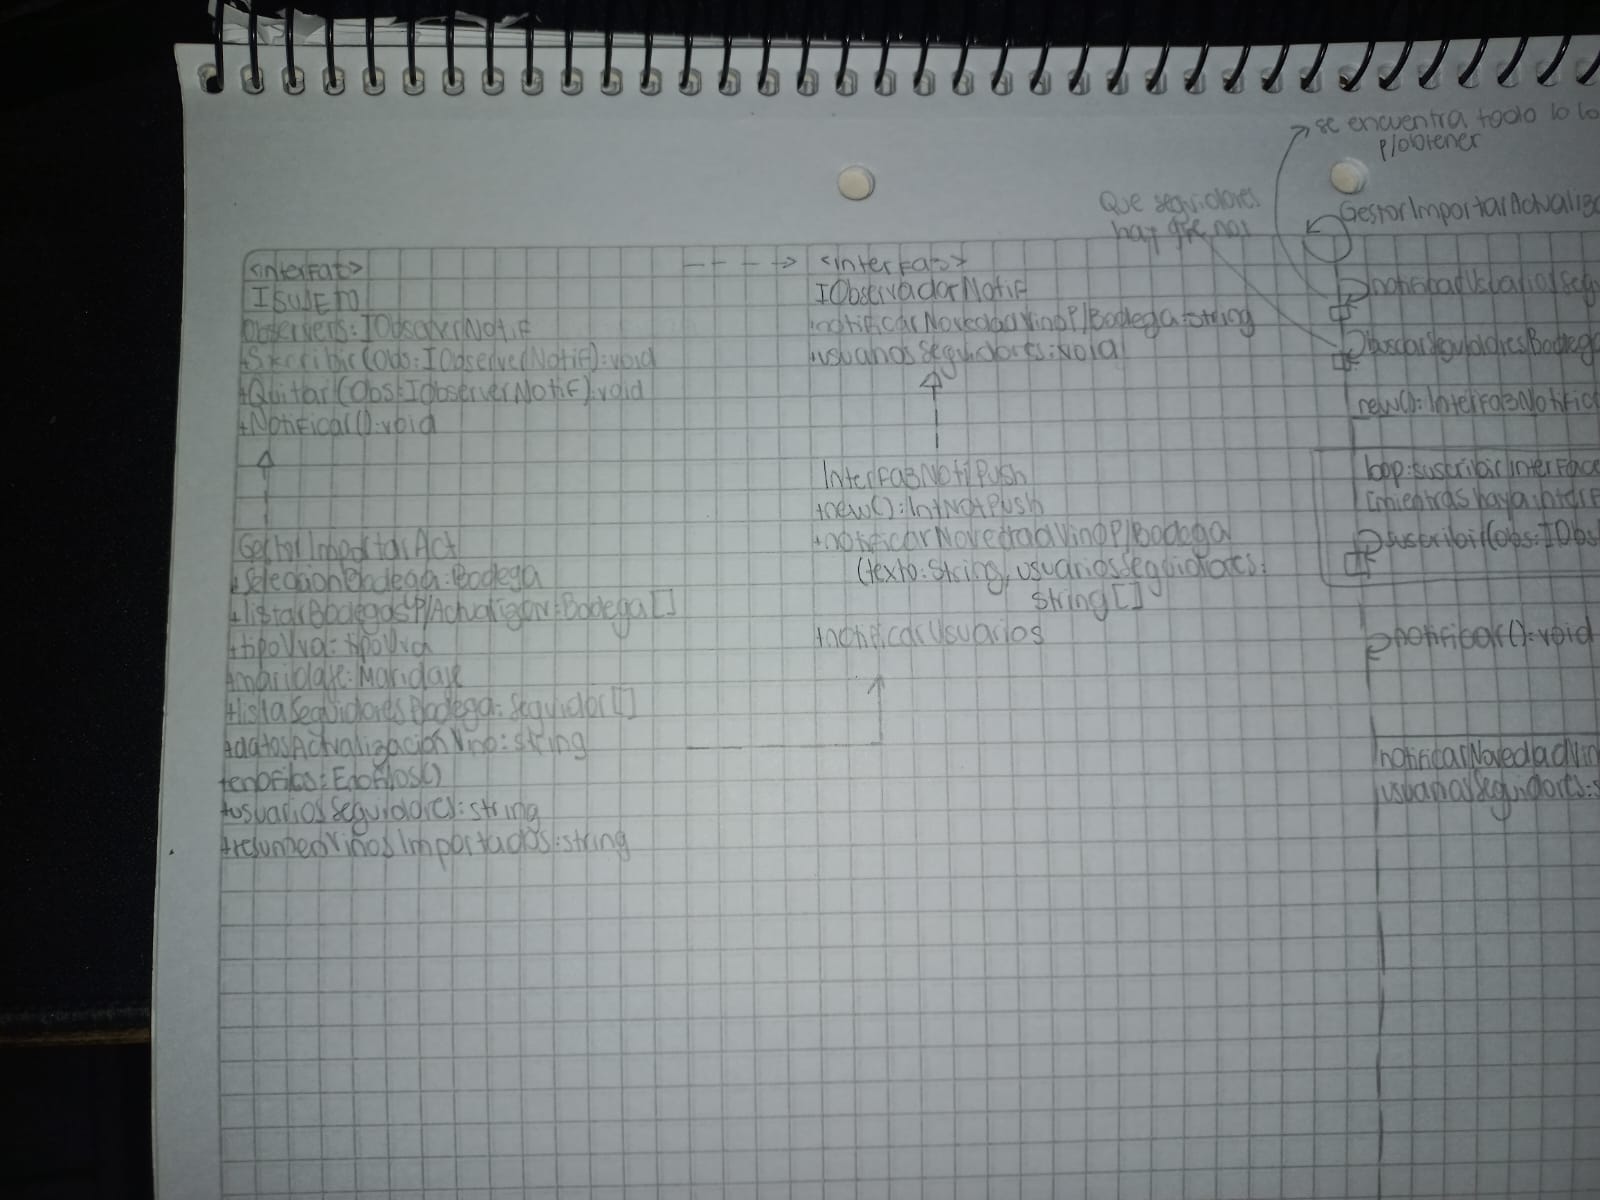 <interfaz>
ISUJETO
Observers: IObserverNotif
+Suscribir(Obs: IObserverNotif): void
+Quitar(Obs: IObserverNotif): void
+Notificar(): void
GestorImportarAct
+SeleccionBodega: Bodega
+listarBodegasP/Actualizar: Bodega[]
+tipoUva: tipoUva
+maridaje: Maridaje
+listaSeguidoresBodega: Seguidor[]
+datosActualizacionVino: string
+enofilos: Enofilos()
+usuariosSeguidores: string
+resumenVinosImportados: string
<interfaz>
IObservadorNotif
+notificarNovedadVinoP/Bodega: string
+usuariosSeguidores: void
InterfazNotiPush
+new(): IntNotPush
+notificarNovedadVinoP/Bodega
(texto: String, usuariosSeguidores:
string[]
+notificarUsuarios
Que seguidores
hay que not
se encuentra todo lo lo
p/obtener
GestorImportarActualiza
notificadUsuariosSegu
buscarSeguidoresBodega
new(): InterfazNotific
loop: suscribir interface
[mientras haya interf
suscribir(obs: IObs
notificar(): void
notificarNovedadVin
usuariosSeguidores: s